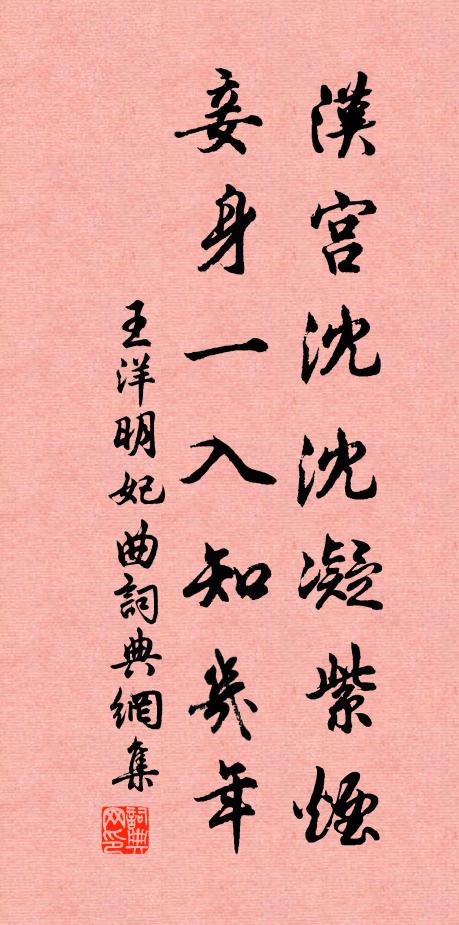 漢宮沈沈凝紫煙
妾身一入知幾年
王洋明妃曲詞典網集
詞典网印